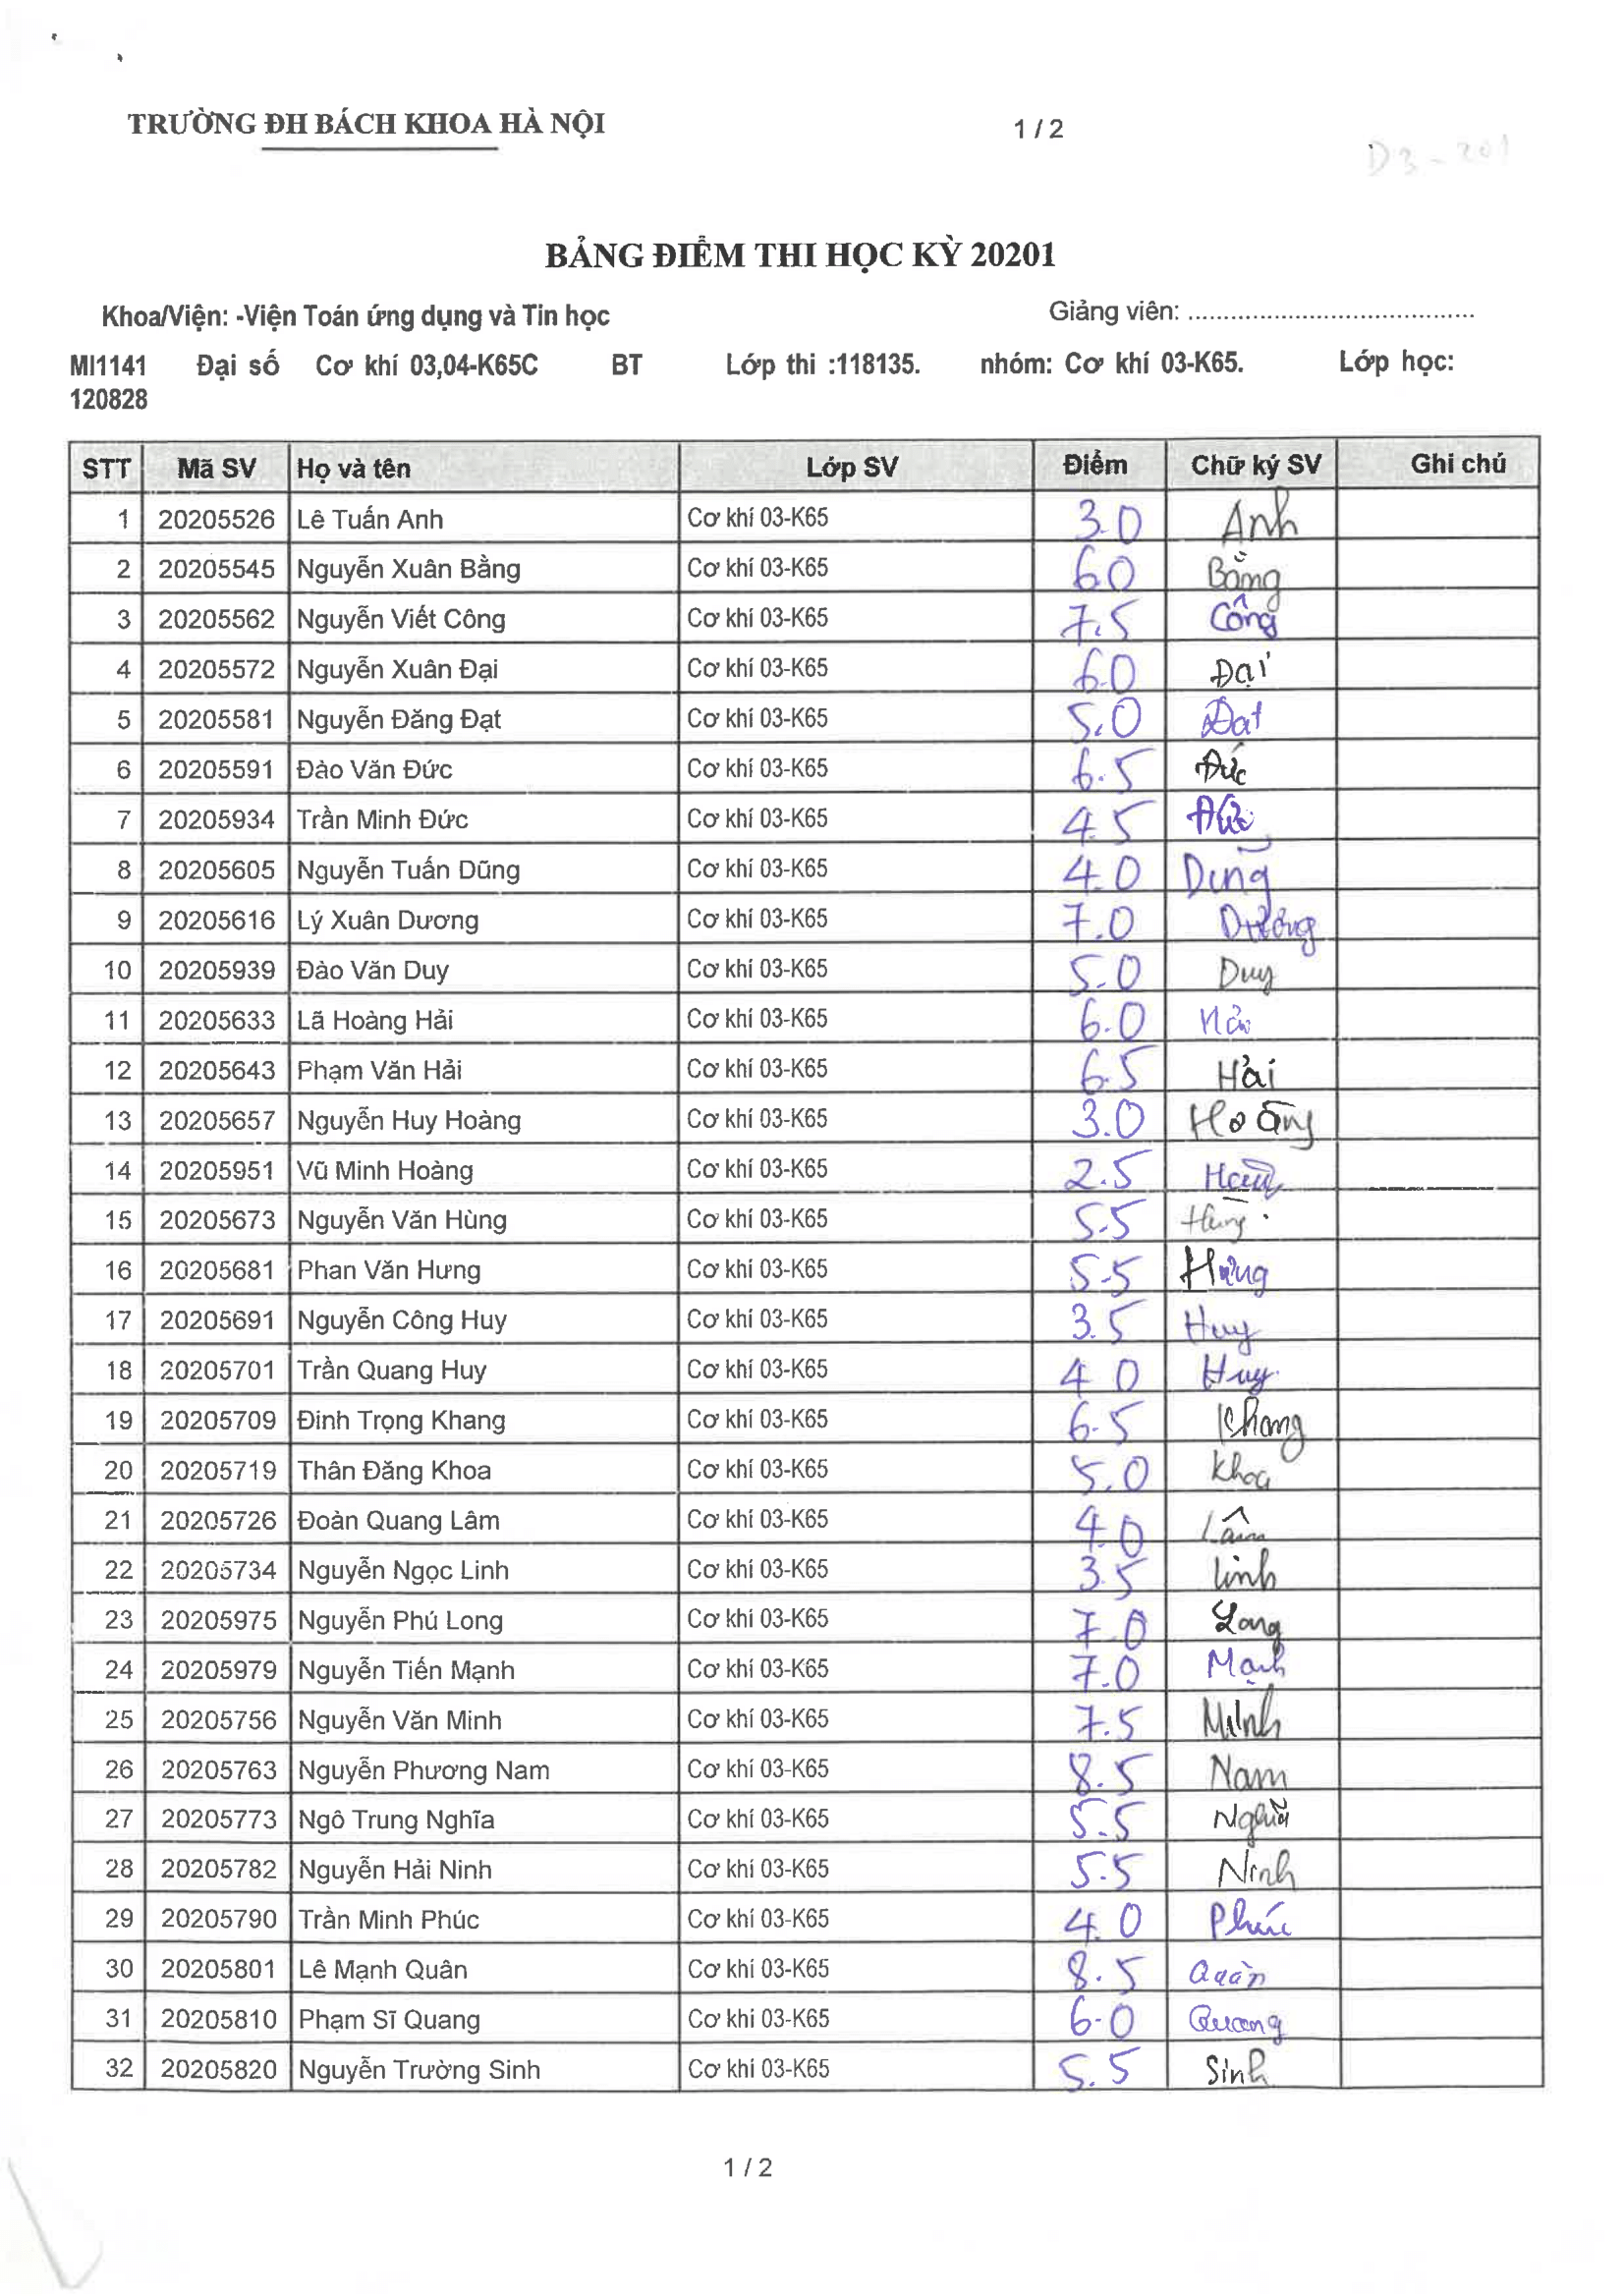 TRƯỜNG ĐH BÁCH KHOA HÀ NỘI 1 / 2
D3-201
BẢNG ĐIỂM THI HỌC KỲ 20201
Khoa/Viện: -Viện Toán ứng dụng và Tin học Giảng viên: ........................................
MI1141 Đại số Cơ khí 03,04-K65C BT Lớp thi :118135. nhóm: Cơ khí 03-K65. Lớp học:
120828
STT Mã SV Họ và tên Lớp SV Điểm Chữ ký SV Ghi chú
1 20205526 Lê Tuấn Anh Cơ khí 03-K65 3.0 Anh
2 20205545 Nguyễn Xuân Bằng Cơ khí 03-K65 6.0 Bằng
3 20205562 Nguyễn Viết Công Cơ khí 03-K65 7.5 Công
4 20205572 Nguyễn Xuân Đại Cơ khí 03-K65 6.0 Đại
5 20205581 Nguyễn Đăng Đạt Cơ khí 03-K65 5.0 Đạt
6 20205591 Đào Văn Đức Cơ khí 03-K65 6.5 Đức
7 20205934 Trần Minh Đức Cơ khí 03-K65 4.5 Đức
8 20205605 Nguyễn Tuấn Dũng Cơ khí 03-K65 4.0 Dũng
9 20205616 Lý Xuân Dương Cơ khí 03-K65 7.0 Dương
10 20205939 Đào Văn Duy Cơ khí 03-K65 5.0 Duy
11 20205633 Lã Hoàng Hải Cơ khí 03-K65 6.0 Hải
12 20205643 Phạm Văn Hải Cơ khí 03-K65 6.5 Hải
13 20205657 Nguyễn Huy Hoàng Cơ khí 03-K65 3.0 Hoàng
14 20205951 Vũ Minh Hoàng Cơ khí 03-K65 2.5
15 20205673 Nguyễn Văn Hùng Cơ khí 03-K65 5.5 Hùng
16 20205681 Phan Văn Hưng Cơ khí 03-K65 5.5 Hưng
17 20205691 Nguyễn Công Huy Cơ khí 03-K65 3.5 Huy
18 20205701 Trần Quang Huy Cơ khí 03-K65 4.0 Huy
19 20205709 Đinh Trọng Khang Cơ khí 03-K65 6.5 Khang
20 20205719 Thân Đăng Khoa Cơ khí 03-K65 5.0 Khoa
21 20205726 Đoàn Quang Lâm Cơ khí 03-K65 4.0 Lâm
22 20205734 Nguyễn Ngọc Linh Cơ khí 03-K65 3.5 Linh
23 20205975 Nguyễn Phú Long Cơ khí 03-K65 7.0 Long
24 20205979 Nguyễn Tiến Mạnh Cơ khí 03-K65 7.0 Mạnh
25 20205756 Nguyễn Văn Minh Cơ khí 03-K65 7.5 Minh
26 20205763 Nguyễn Phương Nam Cơ khí 03-K65 8.5 Nam
27 20205773 Ngô Trung Nghĩa Cơ khí 03-K65 5.5 Nghĩa
28 20205782 Nguyễn Hải Ninh Cơ khí 03-K65 5.5 Ninh
29 20205790 Trần Minh Phúc Cơ khí 03-K65 4.0 Phúc
30 20205801 Lê Mạnh Quân Cơ khí 03-K65 8.5 Quân
31 20205810 Phạm Sĩ Quang Cơ khí 03-K65 6.0 Quang
32 20205820 Nguyễn Trường Sinh Cơ khí 03-K65 5.5 Sinh
1 / 2